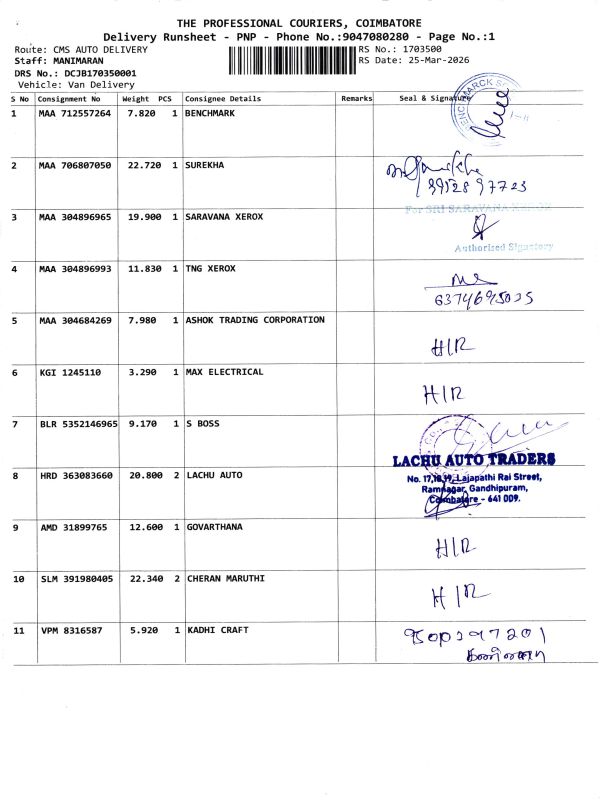 THE PROFESSIONAL COURIERS, COIMBATORE
Delivery Runsheet - PNP - Phone No.:9047080280 - Page No.:1
Route: CMS AUTO DELIVERY RS No.: 1703500
Staff: MANIMARAN RS Date: 25-Mar-2026
DRS No.: DCJB170350001
Vehicle: Van Delivery
S No Consignment No Weight PCS Consignee Details Remarks Seal & Signature
1 MAA 712557264 7.820 1 BENCHMARK
2 MAA 706807050 22.720 1 SUREKHA
For SRI SARAVANA XEROX
3 MAA 304896965 19.900 1 SARAVANA XEROX
Authorised Signatory
4 MAA 304896993 11.830 1 TNG XEROX
6374695035
5 MAA 304684269 7.980 1 ASHOK TRADING CORPORATION
H/R
6 KGI 1245110 3.290 1 MAX ELECTRICAL
H/R
7 BLR 5352146965 9.170 1 S BOSS
LACHU AUTO TRADERS
8 HRD 363083660 20.800 2 LACHU AUTO
No. 17,18,19, Lajapathi Rai Street,
Ramnagar, Gandhipuram,
Coimbatore - 641 009.
9 AMD 31899765 12.600 1 GOVARTHANA
H/R
10 SLM 391980405 22.340 2 CHERAN MARUTHI
H/R
11 VPM 8316587 5.920 1 KADHI CRAFT